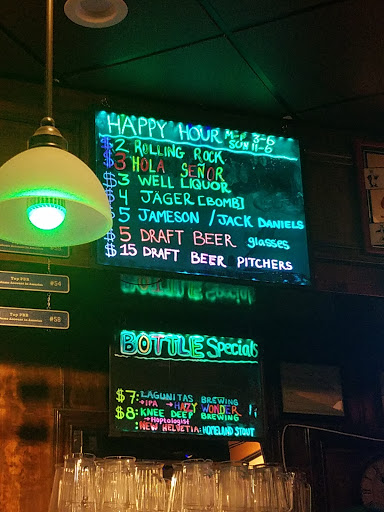 HAPPY HOUR M-F 3-6
SUN 11-6
$2 ROLLING ROCK
$3 HOLA SEÑOR
$3 WELL LIQUOR
$4 JÄGER [BOMB]
$5 JAMESON / JACK DANIELS
$5 DRAFT BEER glasses
$15 DRAFT BEER PITCHERS
Tap PHB
#54
Tap PHB
#58
BOTTLE Specials
$7: LAGUNITAS BREWING
→IPA →HAZY WONDER
$8: KNEE DEEP BREWING
→Hoptologist
: NEW HELVETIA: HOMELAND STOUT